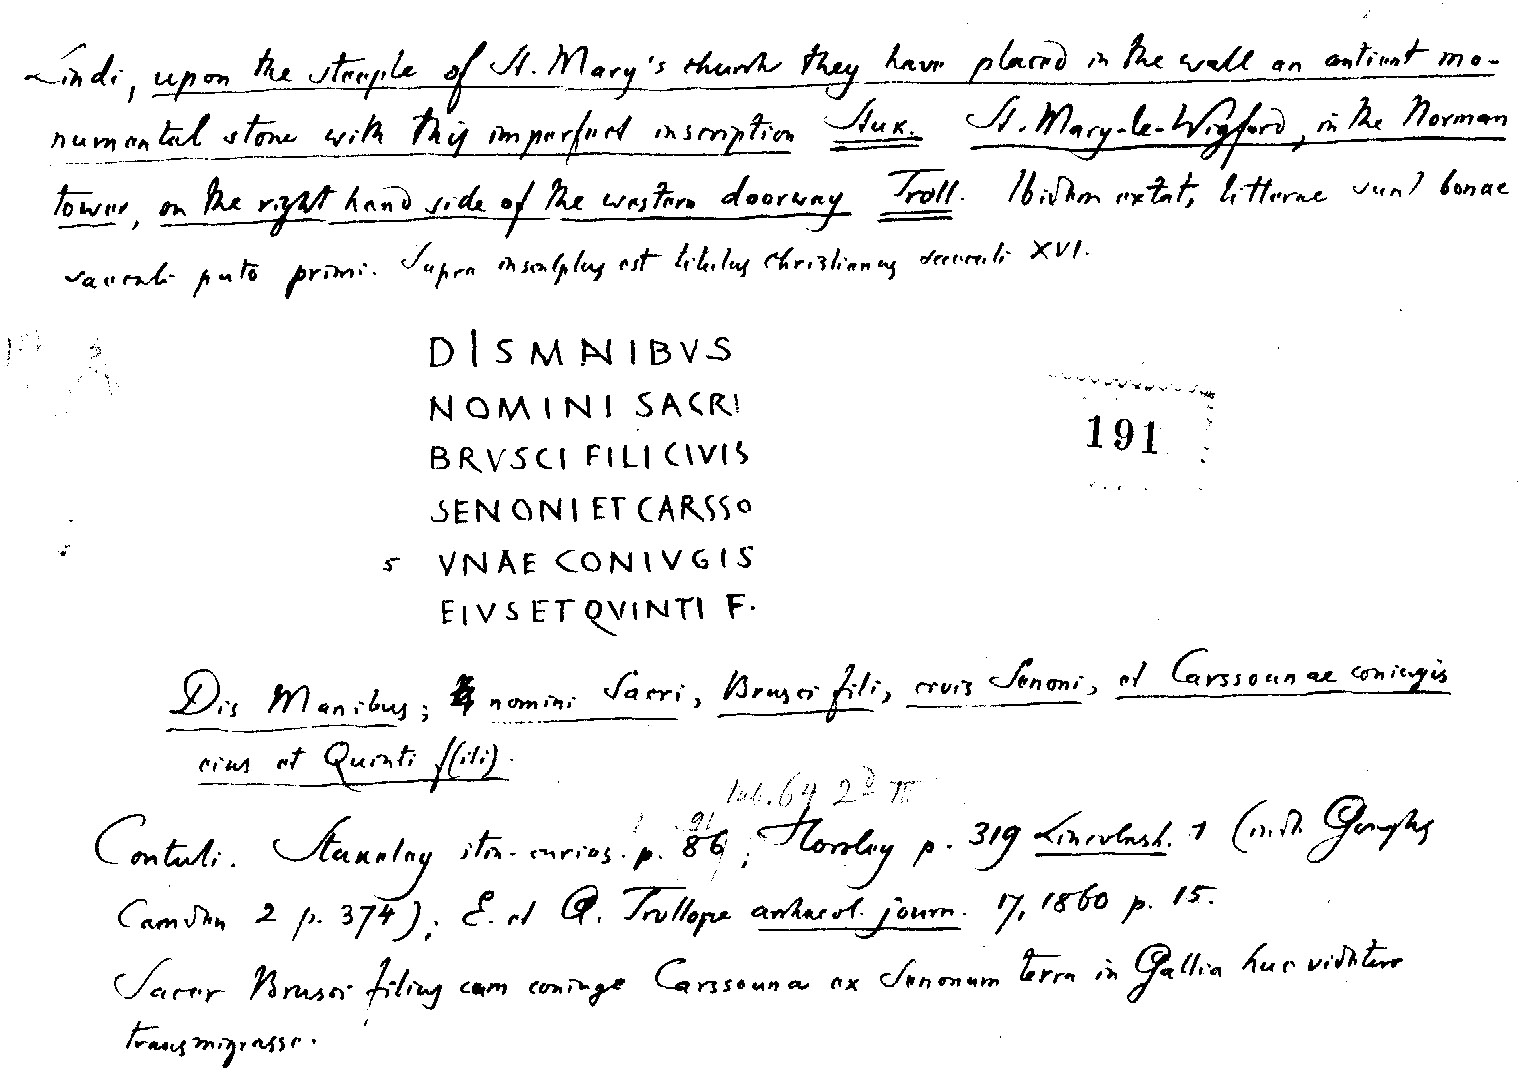 Lindi, upon the steeple of St. Mary's church they have placed in the wall an antient mo-
numental stone with this imperfect inscription Stuk. St. Mary-le-Wigford, in the Norman
tower, on the right hand side of the western doorway Troll. Ibidem extat, litterae sunt bonae
saeculi puto primi. Supra insculptus est titulus christianus saeculi XVI.
DISMANIBVS
NOMINI SACRI
BRVSCI FILI CIVIS
191
SENONI ET CARSSO
5 VNAE CONIVGIS
EIVS ET QVINTI F.
Dis Manibus; nomini Sacri, Brusci fili, civis Senoni, et Carssounae coniugis
eius et Quinti f(ili).
tab. 64 2D
91
Contuli. Stukeley itin. curios. p. 86; Horsley p. 319 Lincolnsh. 1 (inde Goughs
Camden 2 p. 374); E. et A. Trollope archaeol. journ. 17, 1860 p. 15.
Sacer Brusci filius cum coniuge Carssouna ex Senonum terra in Gallia huc videtur
transmigrasse.